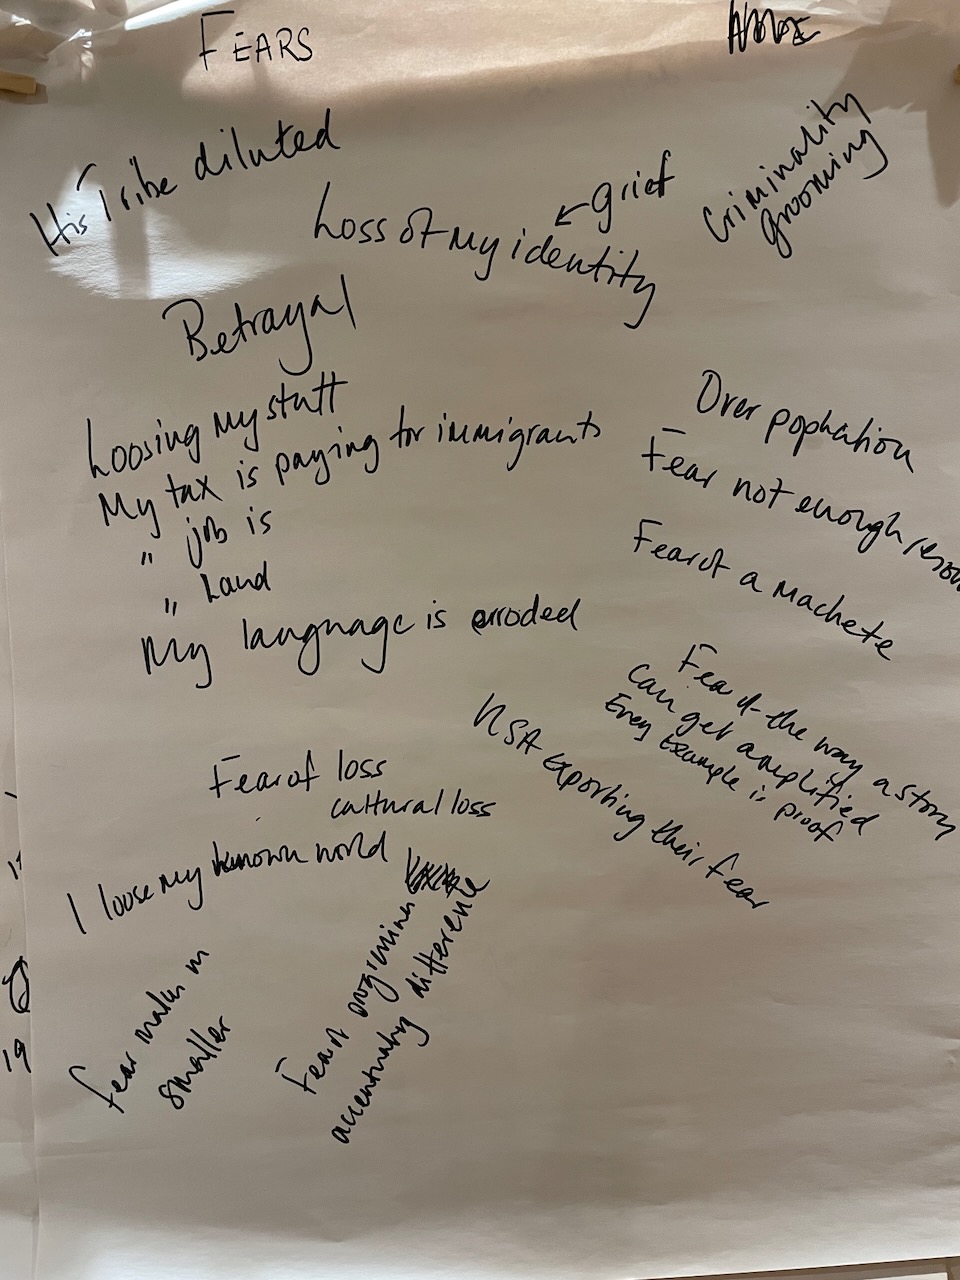 FEARS
His Tribe diluted
Loss of My identity
← grief
Criminality
grooming
Betrayal
Loosing My stuff
My tax is paying for immigrants
" job is
" Land
My language is erroded
Over population
Fear not enough
Fear of a Machete
Fear of the way a story
can get amplified
Every Example is proof
USA exporting their fear
Fear of loss
cultural loss
I loose my known world
Fear makes
smaller
Fear of
accentuating difference
19